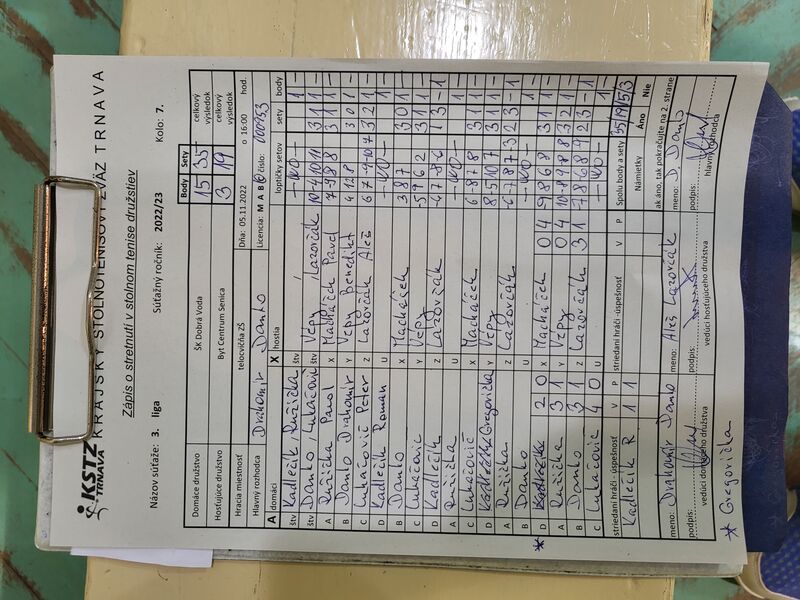 KSTZ TRNAVA KRAJSKÝ STOLNOTENISOVÝ ZVÄZ TRNAVA
Zápis o stretnutí v stolnom tenise družstiev
Názov súťaže: 3. liga Súťažný ročník: 2022/23 Kolo: 7.
Body Sety
Domáce družstvo ŠK Dobrá Voda 15 35 celkový výsledok
Hosťujúce družstvo Byt Centrum Senica 3 19 celkový výsledok
Hracia miestnosť telocvičňa ZŠ Dňa: 05.11.2022 o 16:00 hod.
Hlavný rozhodca Drahomír Danko Licencia: M A B číslo: 000153
A domáci X hostia loptičky setov sety body
štv Kadlečík, Ružička štv — WO — 1 —
štv Danko, Lukačovič štv Vépy, Lazovčák 10 -4 10 11 3 1 1 —
A Ružička Pavol X Macháček Pavel 7 -9 8 8 3 1 1 —
B Danko Drahomír Y Vépy Benedikt 4 12 8 3 0 1 —
C Lukačovič Peter Z Lazovčák Aleš 3 2 1 —
D Kadlečík Roman U — WO — 1 —
B Danko X Macháček 3 8 7 3 0 1 —
C Lukačovič Y Vépy 3 1 1 —
D Kadlečík Z Lazovčák 1 3 — 1
A Ružička U — WO — 1 —
C Lukačovič X Macháček 3 1 1 —
D Gregovička Y Vépy 8 -5 10 7 3 1 1 —
A Ružička Z Lazovčák 2 3 — 1
B Danko U — WO — 1 —
* D 2 0 X Macháček 0 4 3 1 1 —
A Ružička 3 1 Y Vépy 0 4 3 2 1 —
B Danko 3 1 Z Lazovčák 3 1 2 3 — 1
C Lukačovic 4 0 U — WO — 1 —
striedaní hráči - úspešnosť V P striedaní hráči - úspešnosť V P Spolu body a sety 35/19/15/3
Kadlečík R 1 1 Námietky Áno Nie
ak áno, tak pokračujte na 2. strane
meno: Drahomír Danko meno: Aleš Lazovčák meno: D. Danko
podpis: podpis: podpis:
vedúci domáceho družstva vedúci hosťujúceho družstva hlavný rozhodca
* Gregovička